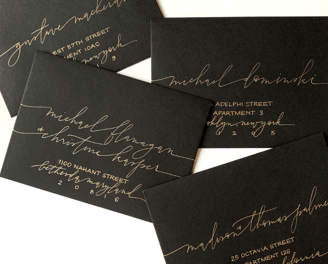 gustave
EST 57TH STREET
MENT 10AC
newyork
9
michael dominski
ADELPHI STREET
APARTMENT 3
oklyn, newyork
2 5
michael flanagan
+ christine harper
1100 NAHANT STREET
bethesda, maryland
2 0 8 1 6
madison + thomas palme
25 OCTAVIA STREET
APARTMENT 126
lifornia